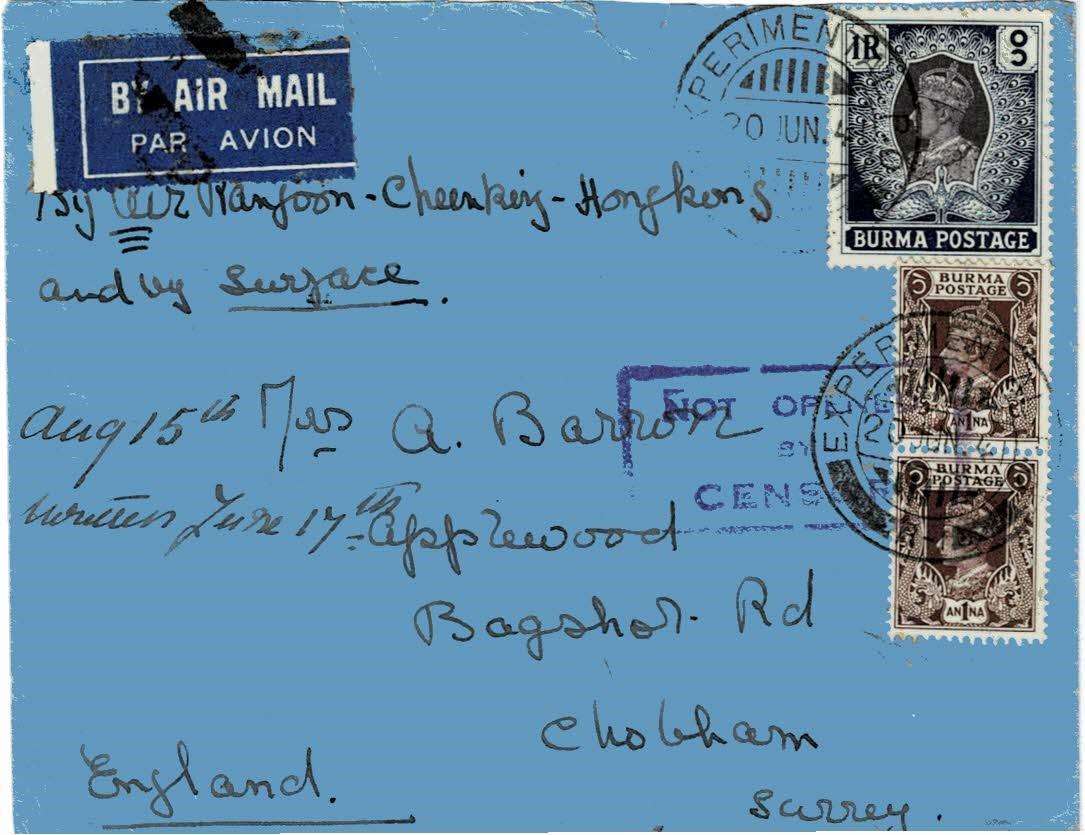 BY AIR MAIL
PAR AVION
EXPERIMENT
20 JUN. 4
1R
၁
BURMA POSTAGE
By air Rangoon - Chunking - Hongkong
and by Surface.
BURMA
POSTAGE
AN1NA
EXPERIMENT
20 JUN.
NOT OPENE
BY
CENS
Aug 15th Mrs A. Barron
written June 17th Applewood
BURMA
POSTAGE
AN1NA
Bagshot Rd
Chobham
England.
Surrey.